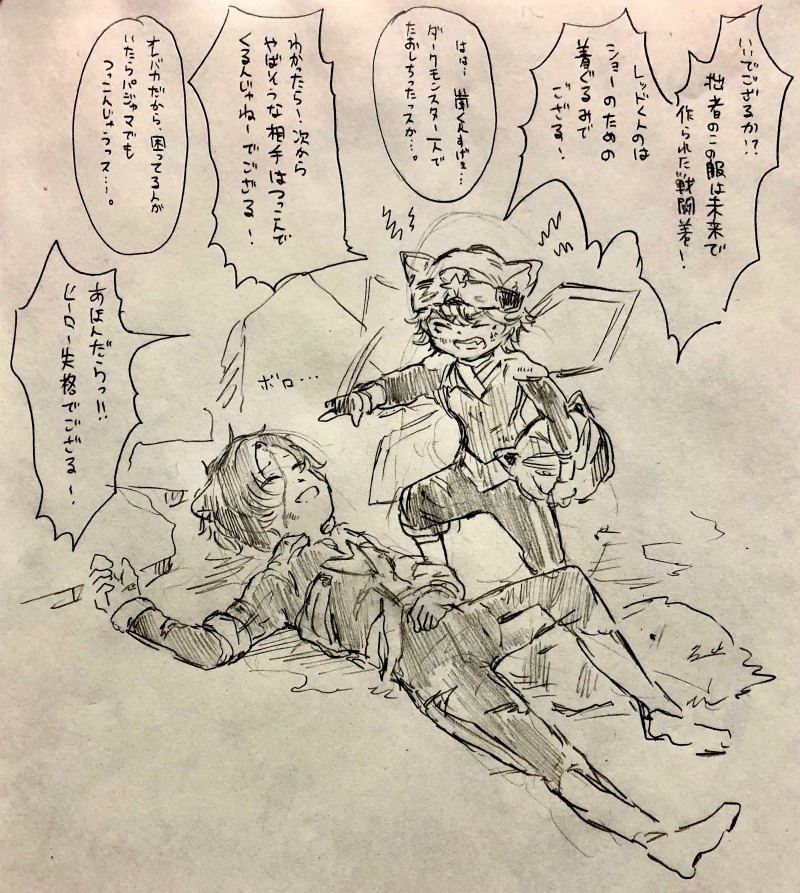 いいでござるか!?
拙者のこの服は未来で
作られた戦闘着ー!
レッドくんのは
ショーのための
着ぐるみで
ござる!
はは…嵐くんすげぇ…
ダークモンスター一人で
たおしちったっスか…。
わかったら!次から
やばそうな相手はつっこんで
くるんじゃねーでござるー!
オレバカだから、困ってる人が
いたらパジャマでも
つっこんじゃうっス…。
あほんだらっ!!
ヒーロー失格でござるー!
ボロ…